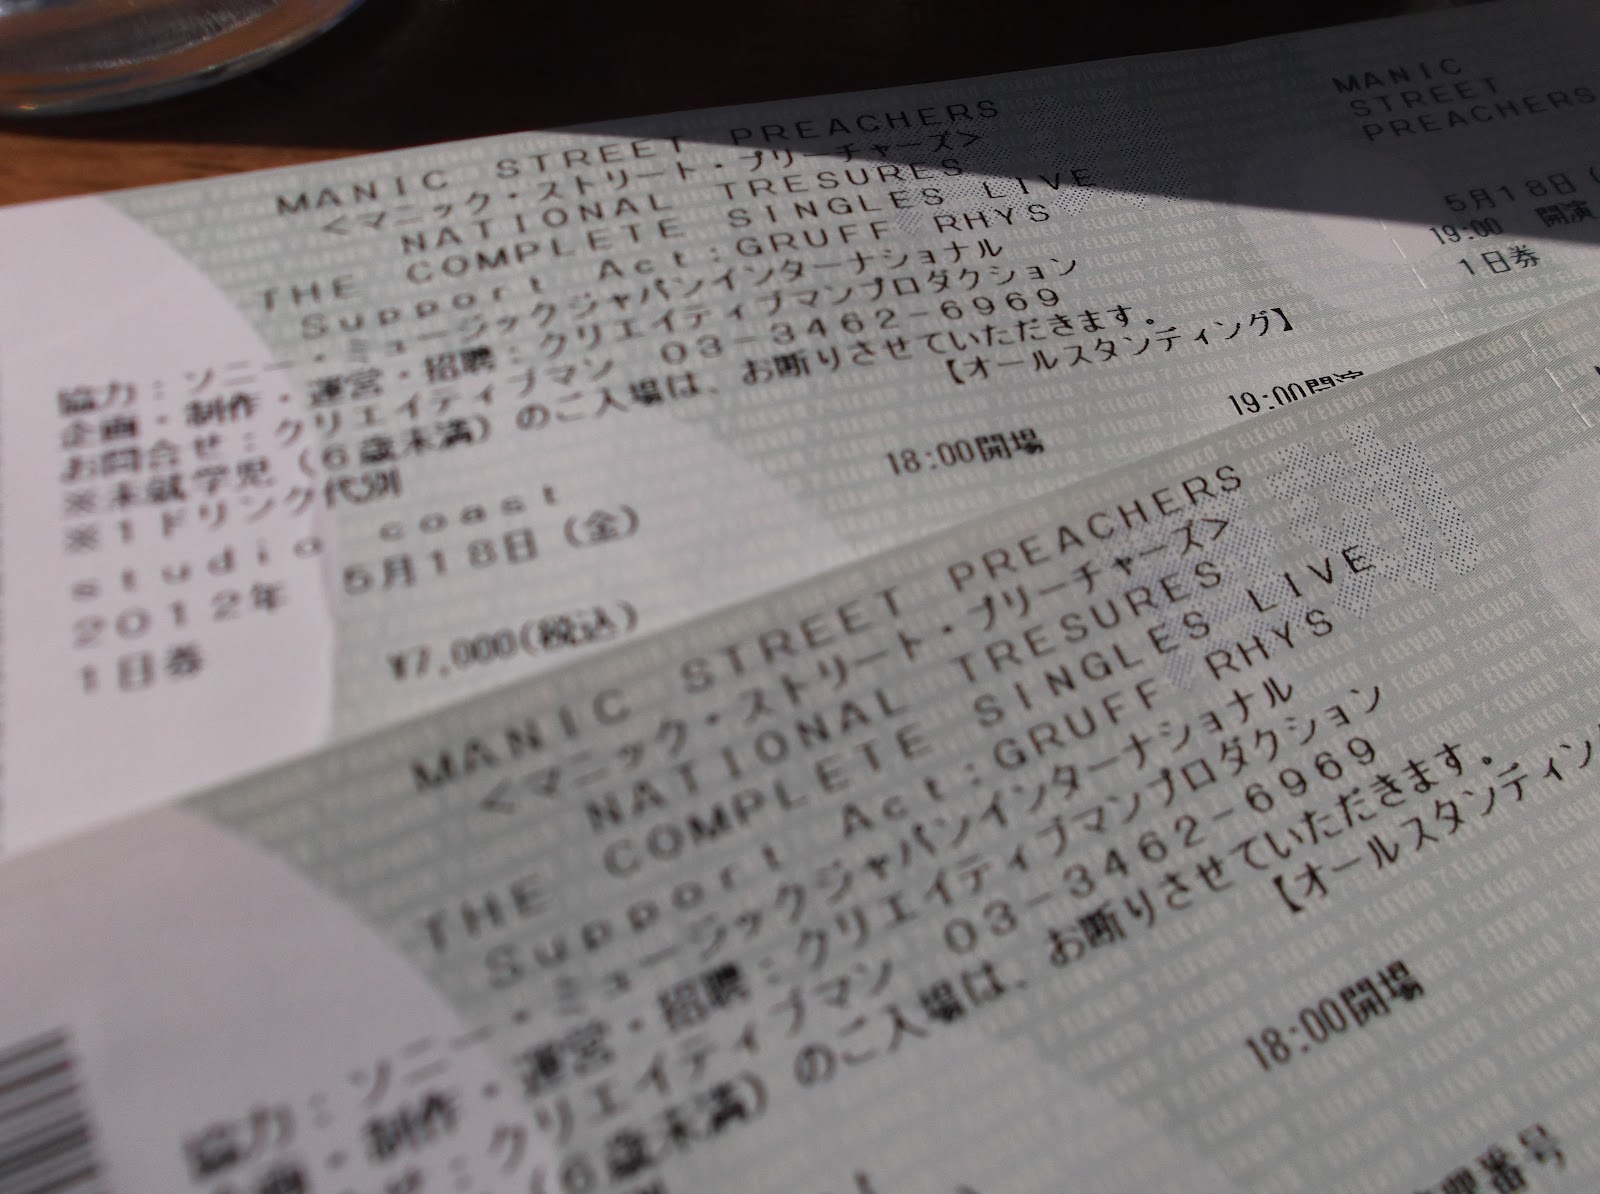 MANIC STREET PREACHERS
<マニック・ストリート・プリーチャーズ>
NATIONAL TRESURES
THE COMPLETE SINGLES LIVE
Support Act:GRUFF RHYS
協力:ソニー・ミュージックジャパンインターナショナル
企画・制作・運営・招聘:クリエイティブマンプロダクション
お問合せ:クリエイティブマン 03-3462-6969
※未就学児(6歳未満)のご入場は、お断りさせていただきます。
※1ドリンク代別 【オールスタンディング】
studio coast
2012年 5月18日(金) 18:00開場 19:00開演
1日券 ¥7,000(税込)
MANIC
STREET
PREACHERS
5月18日(
19:00 開演
1日券
MANIC STREET PREACHERS
<マニック・ストリート・プリーチャーズ>
NATIONAL TRESURES
THE COMPLETE SINGLES LIVE
Support Act:GRUFF RHYS
協力:ソニー・ミュージックジャパンインターナショナル
企画・制作・運営・招聘:クリエイティブマンプロダクション
せ:クリエイティブマン 03-3462-6969
(6歳未満)のご入場は、お断りさせていただきます。
【オールスタンディン
18:00開場
番号
7-ELEVEN